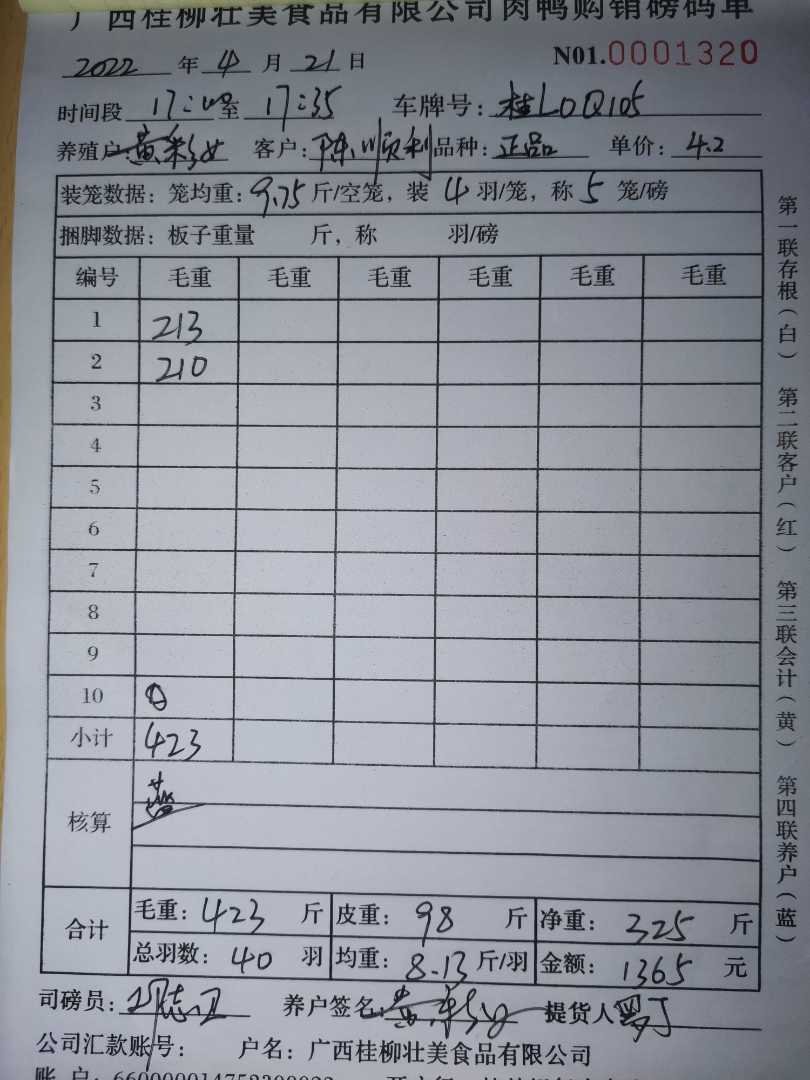 广西桂柳壮美食品有限公司肉鸭购销磅码单
2022 年 4 月 21 日 N01.0001320
时间段 17:00 至 17:35 车牌号: 桂LOQ105
养殖户: 黄彩女 客户: 陈顺利 品种: 正品 单价: 4.2
装笼数据: 笼均重: 9.75 斤/空笼, 装 4 羽/笼, 称 5 笼/磅
捆脚数据: 板子重量 斤, 称 羽/磅
编号 毛重 毛重 毛重 毛重 毛重 毛重
1 213
2 210
3
4
5
6
7
8
9
10
小计 423
核算
合计 毛重: 423 斤 皮重: 98 斤 净重: 325 斤
总羽数: 40 羽 均重: 8.13 斤/羽 金额: 1365 元
司磅员: 养户签名: 黄彩女 提货人
公司汇款账号: 户名: 广西桂柳壮美食品有限公司
第一联存根(白) 第二联客户(红) 第三联会计(黄) 第四联养户(蓝)